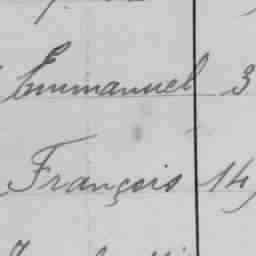 Emmanuel 3
François 14